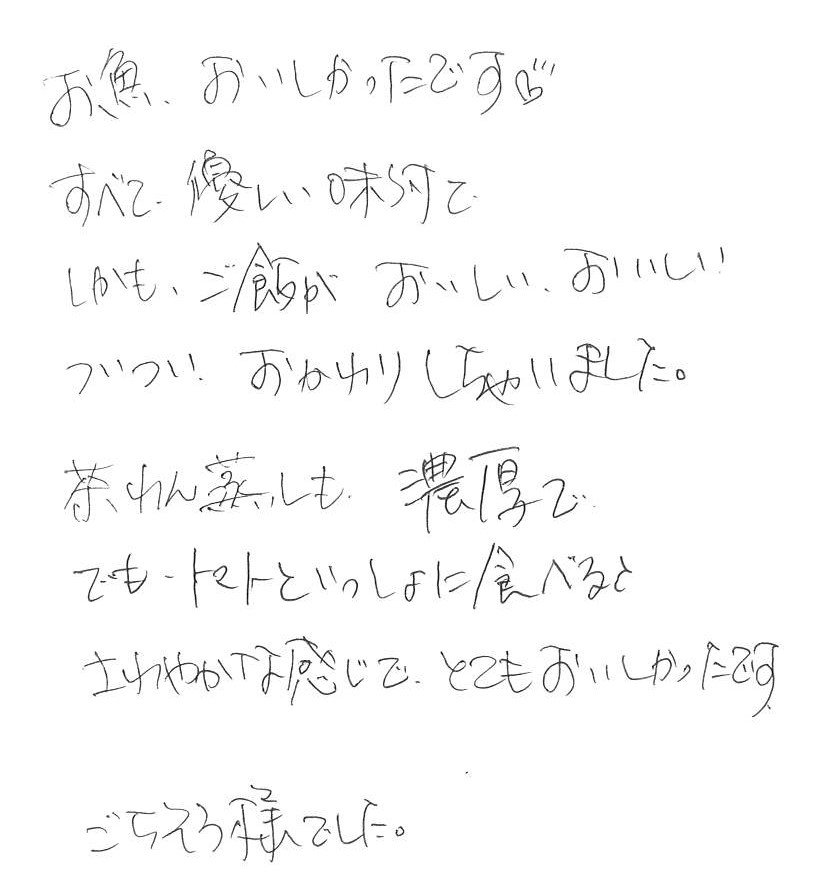 お魚、おいしかったです♡
すべて、優しい味付で
しかも、ご飯が おいしい、おいしい
ついつい、おかわりしちゃいました。
茶わん蒸しも、濃厚で
でも、トマトといっしょに食べると
さわやかな感じで、とてもおいしかったです
ごちそう様でした。